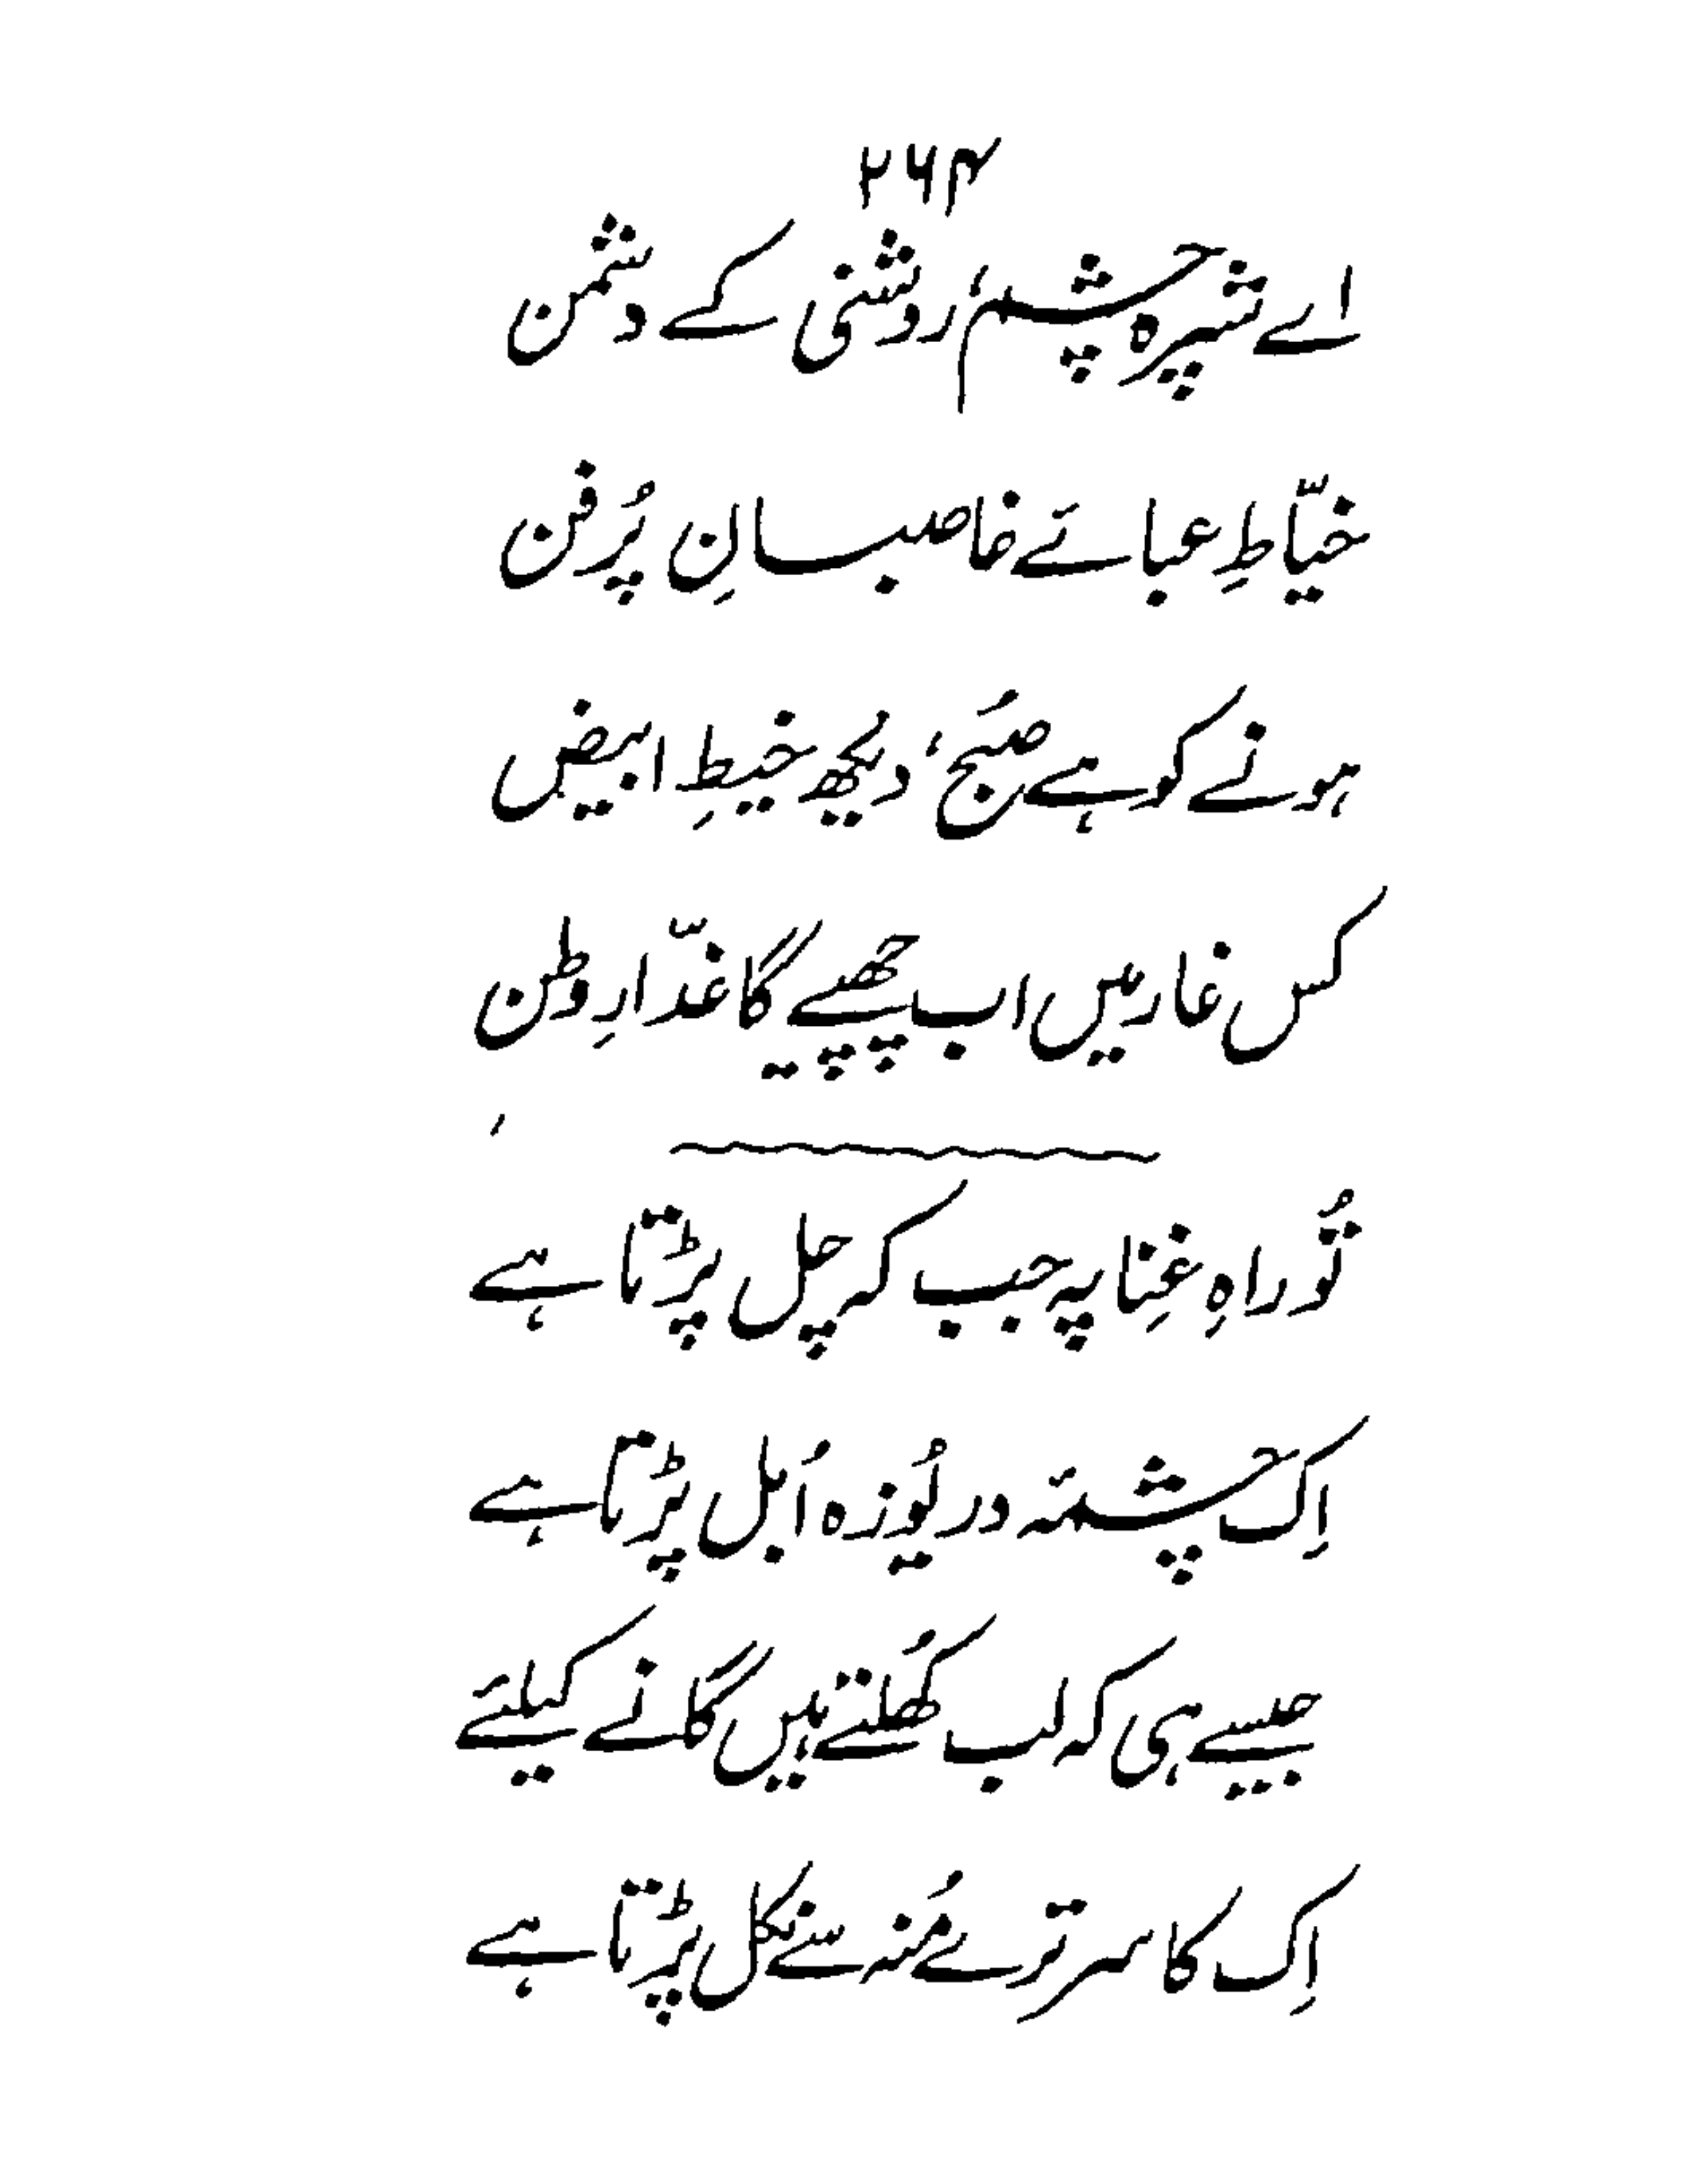 ۲۶۴
اے تیرہ چشم، روشنی کے دشمن
خیّاطِ عبائے غاصبانِ پُرفن
ہونے کو ہے صُبح، دیکھ خیطِ ابیض
کس غار میں اب چھپے گا غدّارِ وطن
تُو راہِ غِنا پہ جب کر چل پڑتا ہے
اِک چشمۂ دریُوزہ اُبل پڑتا ہے
جیسے ہی کہ لب کھُلتے ہیں گانے کیلئے
اِک کاسہ ترے مُنہ سے نکل پڑتا ہے